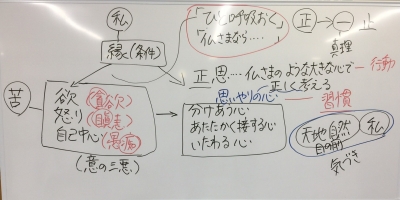 私
縁(条件)
「ひと呼吸おく」
「仏さまなら・・・・」
正→一 止
真理
苦
欲(貪欲)
怒り(瞋恚)
自己中心(愚痴)
(意の三悪)
正思・・・・仏さまのような大きな心で―行動
正しく考える
思いやりの心― 習慣
分けあう心
あたたかく接する心
いたわる心
天地自然 私
目の前
気づき